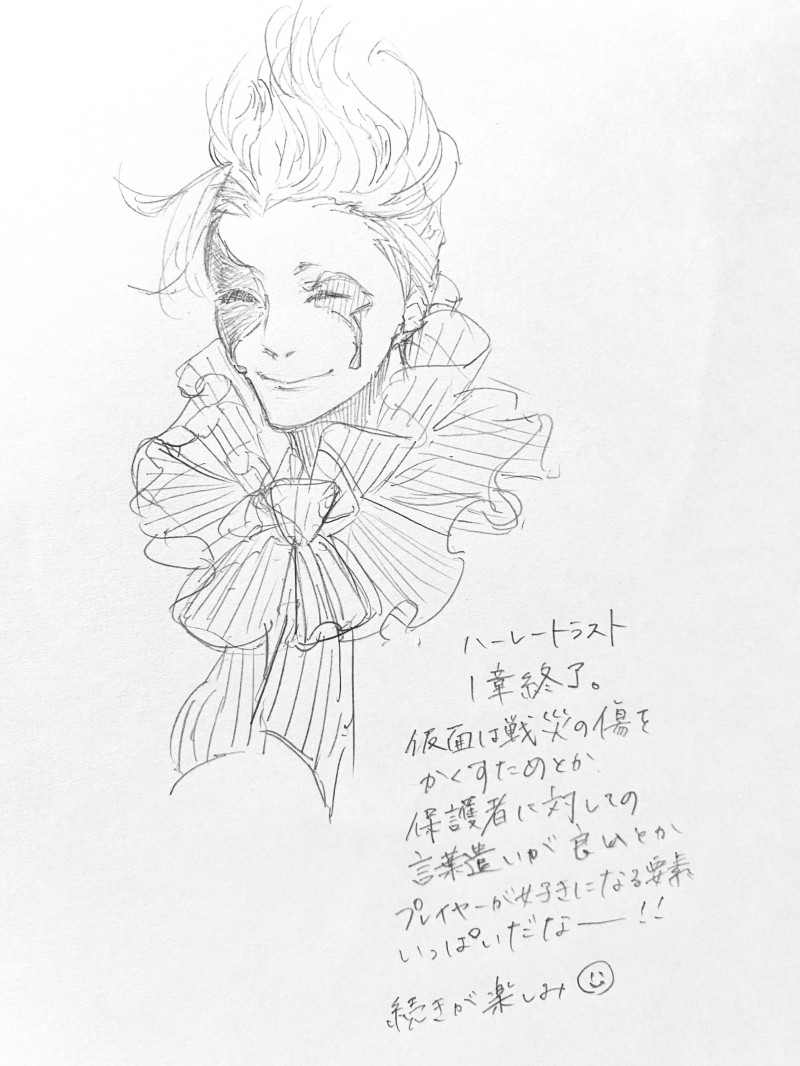 ハーレートラスト
1章終了。
仮面は戦災の傷を
かくすためとか
保護者に対しての
言葉遣いが良いとか
プレイヤーが好きになる要素
いっぱいだなー!!
続きが楽しみ